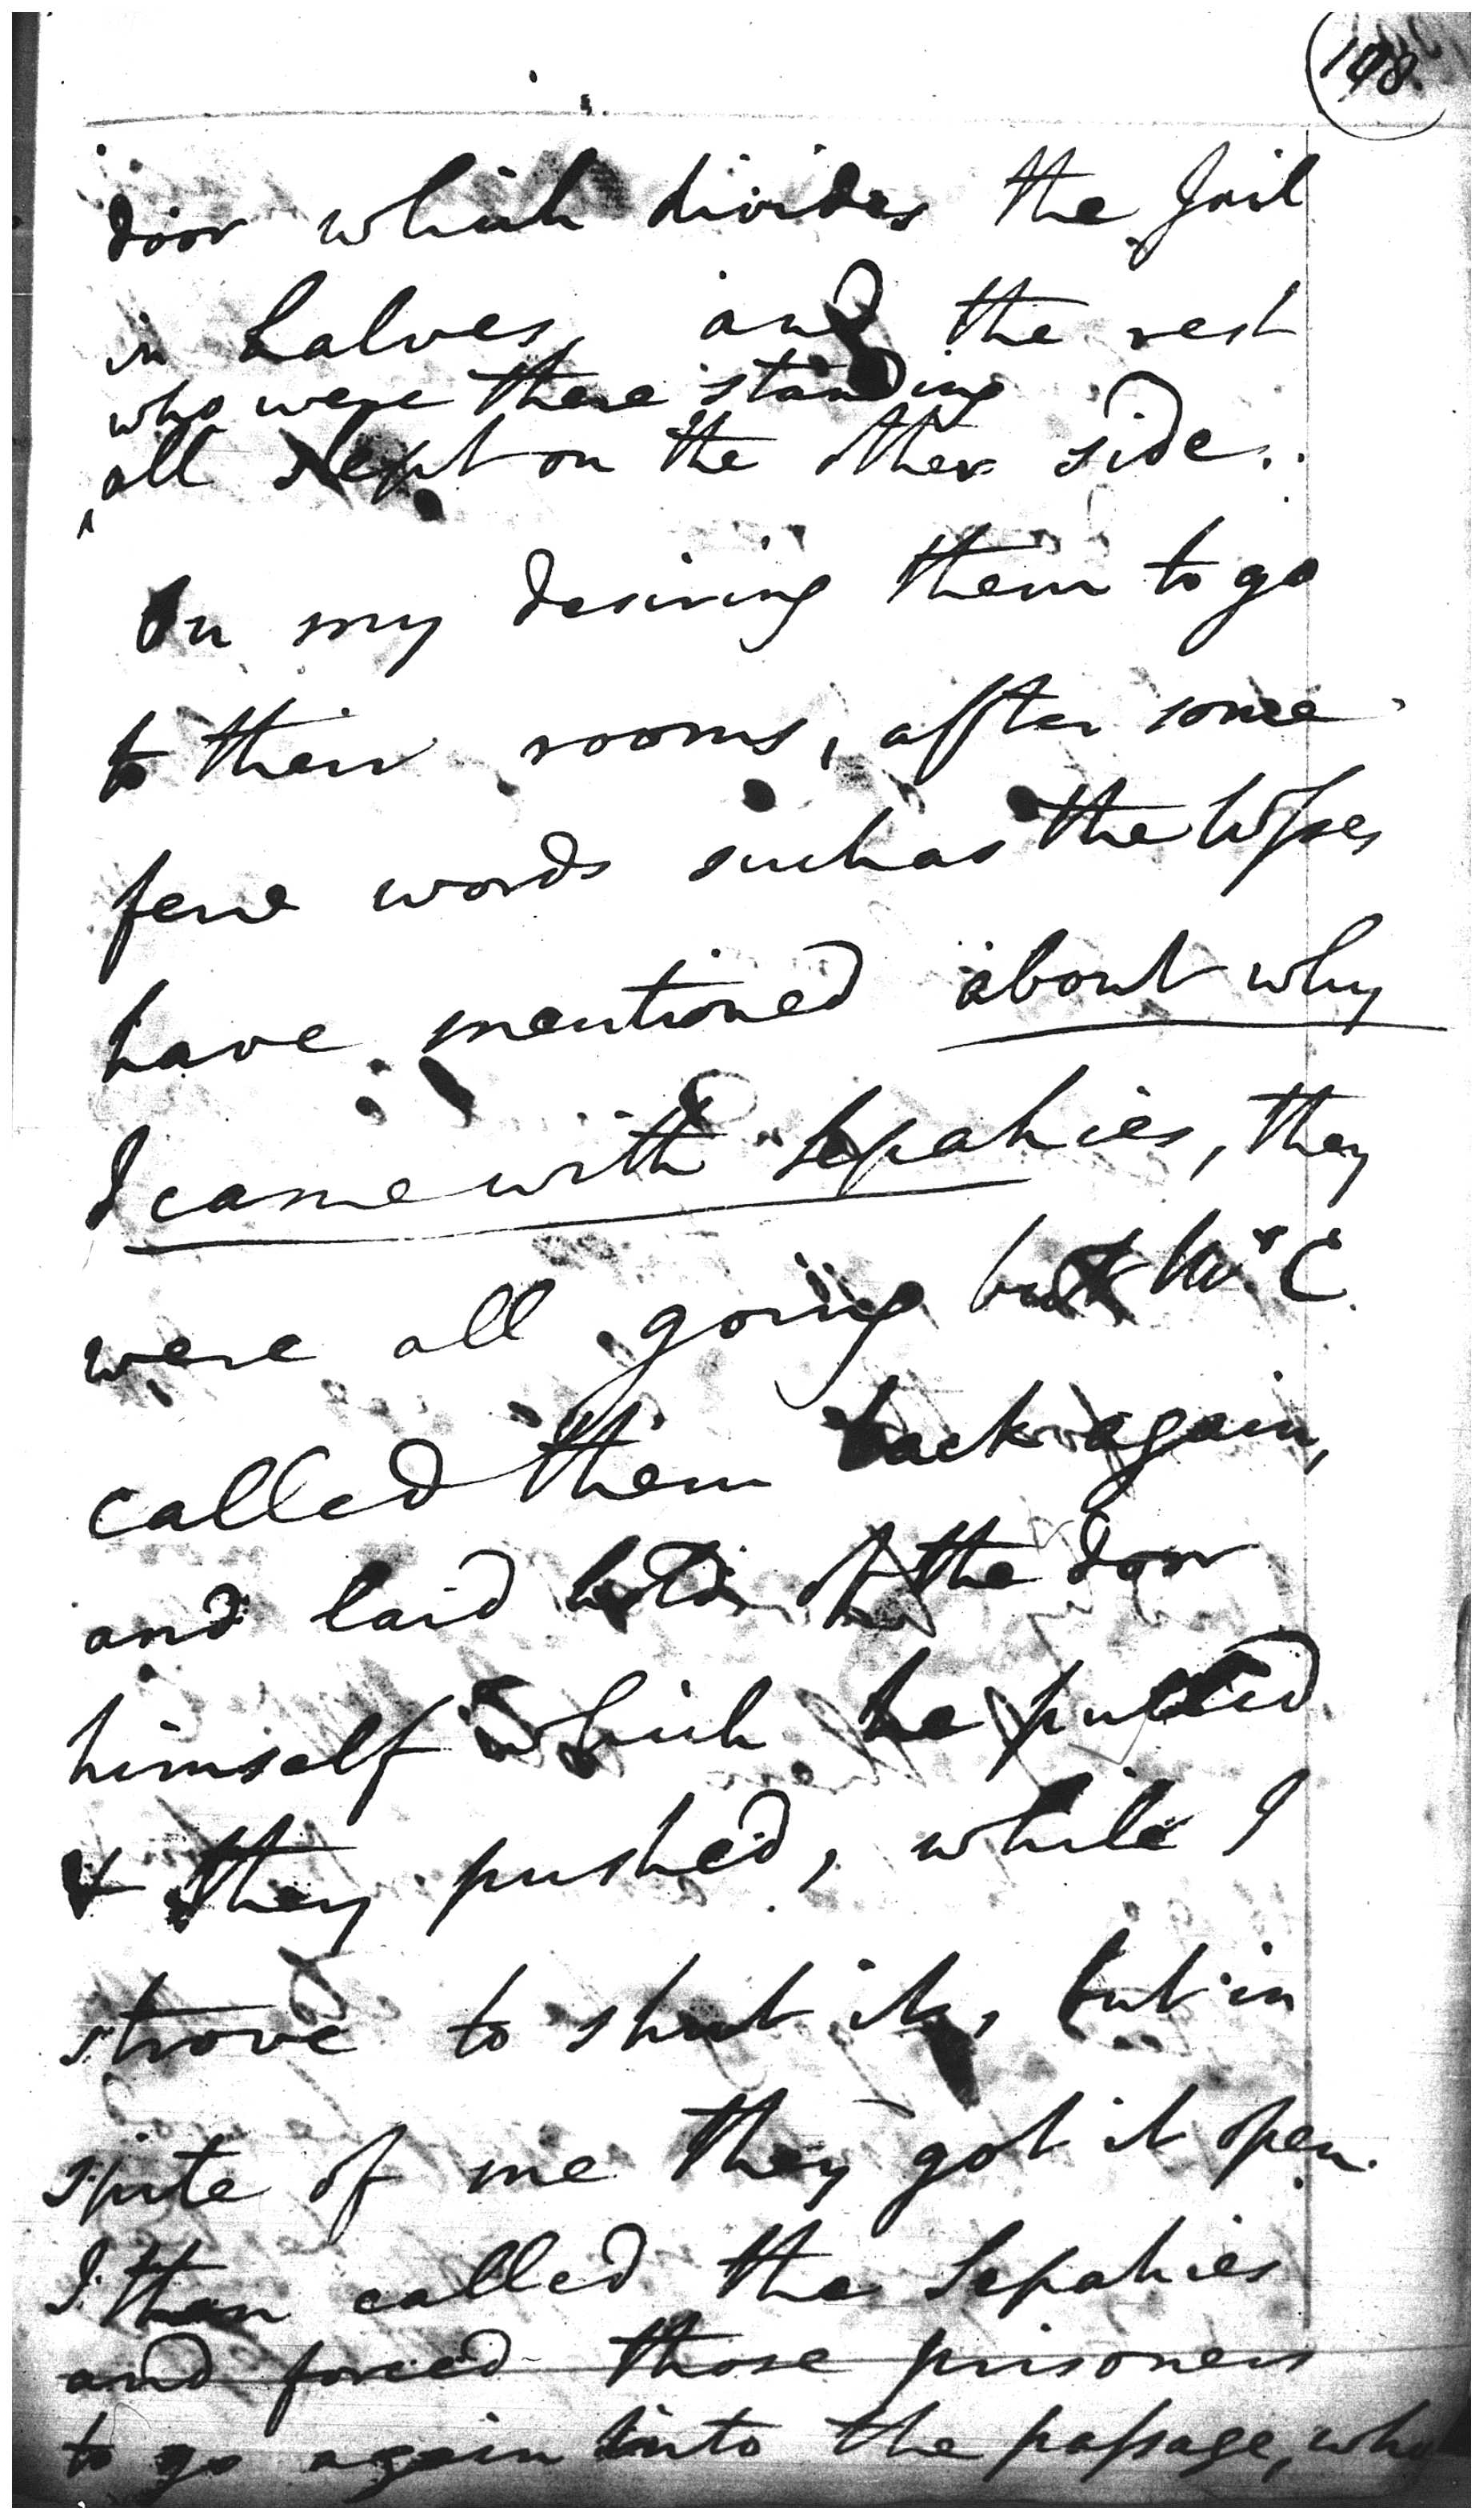 198.
door which divides the Jail
in halves, and the rest
who were there standing
all slept on the other side.
On my desiring them to go
to their rooms, after some
few words such as the
have mentioned about why
I came with Sepahies, they
were all going but Mr C.
called them back again,
and laid hold of the door
himself which he pulled
& they pushed, while I
strove to shut it, but in
spite of me they got it open.
I then called the Sepahies
and forced those prisoners
to go again into the passage, who